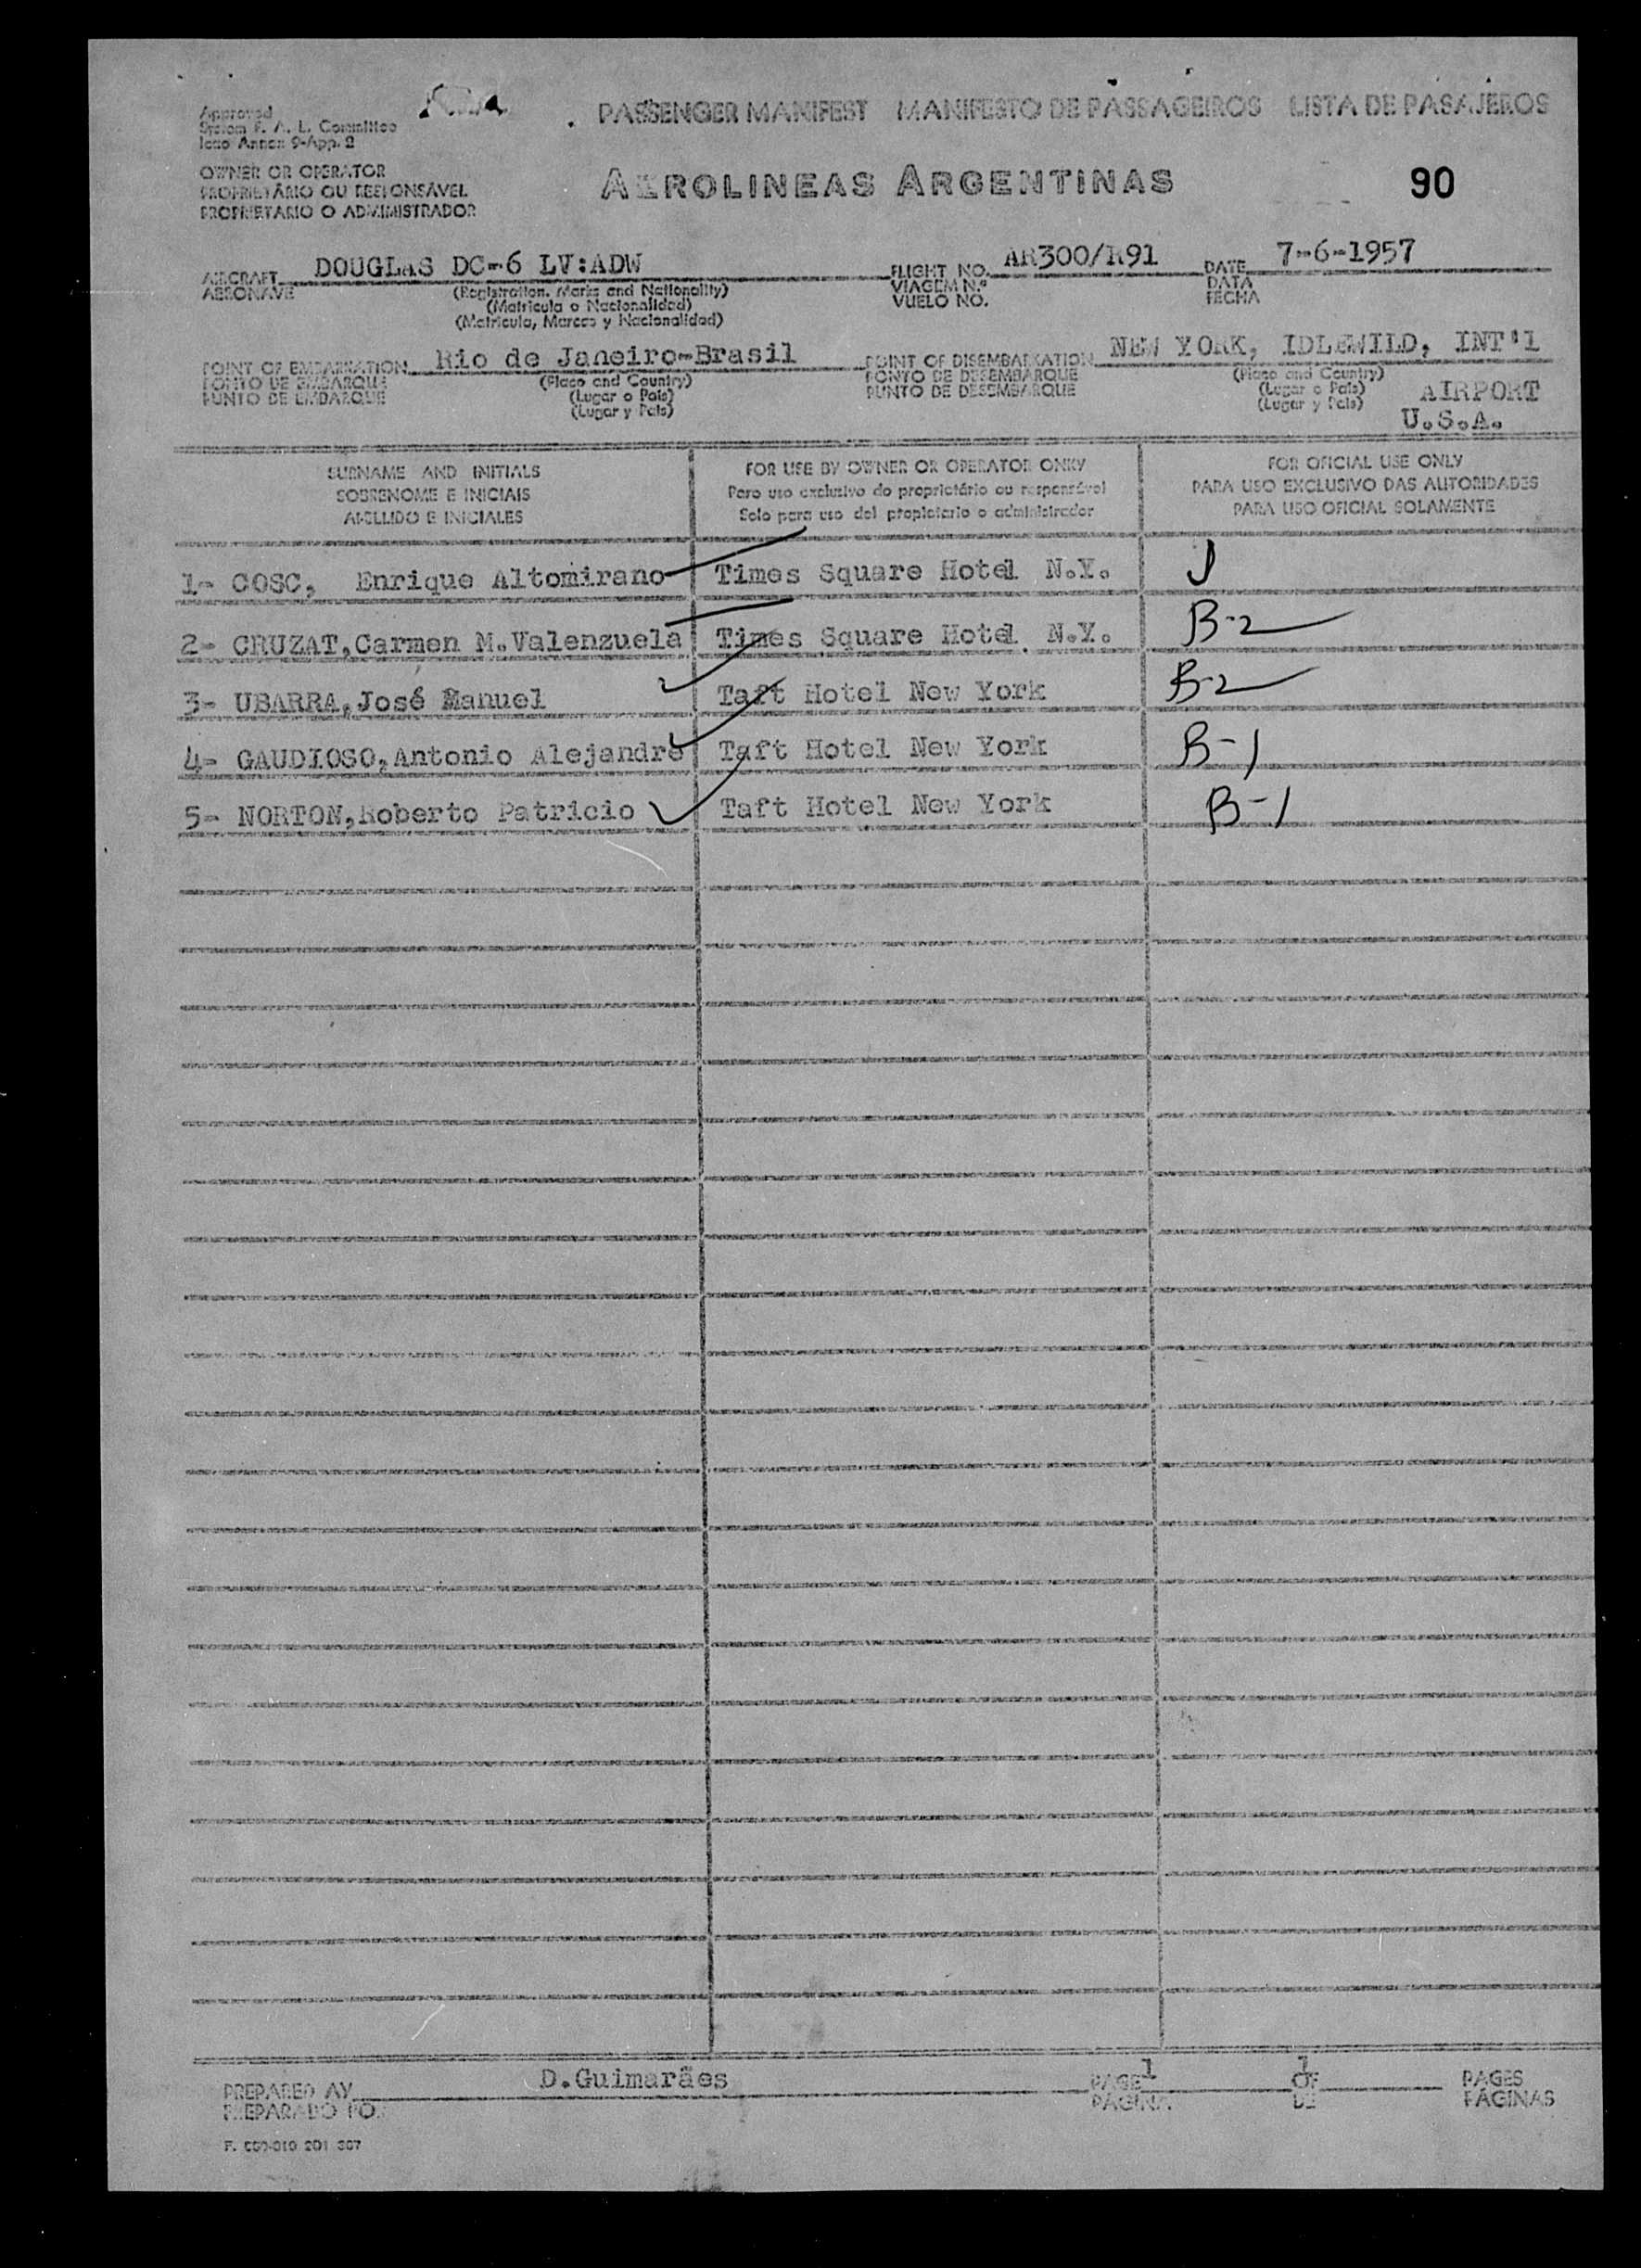 Approved
System F. A. L. Committee
Icao Annex 9-App. 2
PASSENGER MANIFEST MANIFESTO DE PASSAGEIROS LISTA DE PASAJEROS
OWNER OR OPERATOR
PROPRIETÁRIO OU RESPONSÁVEL
PROPRIETARIO O ADMINISTRADOR
AEROLINEAS ARGENTINAS
90
AIRCRAFT DOUGLAS DC-6 LV:ADW FLIGHT NO. AR300/R91 DATE 7-6-1957
AERONAVE (Registration, Marks and Nationality) VIAGEM N.º DATA
(Matricula o Nacionalidad) VUELO NO. FECHA
(Matricula, Marcas y Nacionalidad)
POINT OF EMBARKATION Rio de Janeiro-Brasil POINT OF DISEMBARKATION NEW YORK, IDLEWILD, INT'l
PONTO DE EMBARQUE (Place and Country) PONTO DE DESEMBARQUE (Place and Country)
PUNTO DE EMBARQUE (Lugar o País) PUNTO DE DESEMBARQUE (Lugar o País) AIRPORT
(Lugar y País) (Lugar y País) U.S.A.
SURNAME AND INITIALS FOR USE BY OWNER OR OPERATOR ONKY FOR OFICIAL USE ONLY
SOBRENOME E INICIAIS Para uso exclusivo do proprietário ou responsável PARA USO EXCLUSIVO DAS AUTORIDADES
APELLIDO E INICIALES Solo para uso del propietario o administrador PARA USO OFICIAL SOLAMENTE
1- COSC, Enrique Altomirano Times Square Hotel N.Y.
2- CRUZAT,Carmen M.Valenzuela Times Square Hotel N.Y. B-2
3- UBARRA,José Manuel Taft Hotel New York B-2
4- GAUDIOSO,Antonio Alejandre Taft Hotel New York B-1
5- NORTON,Roberto Patricio Taft Hotel New York B-1
PREPARED AY D.Guimarães PAGE 1 OF 1 PAGES
PREPARADO POR PAGINA DE PÁGINAS